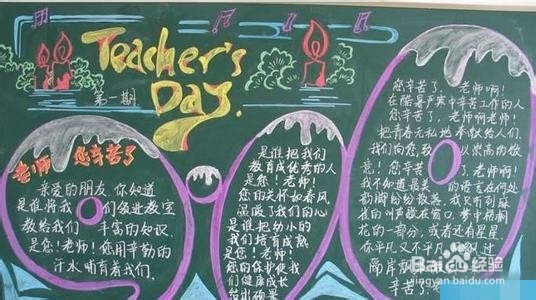 Teacher's
Day.
第一期
老师 您辛苦了
亲爱的朋友 你知道
是谁将我们领进教室
教给我们丰富的知识
是您!老师!您用辛勤的
汗水哺育着我们.
是谁把我们
教育成优秀的人
是您!老师!
您的关怀如春风
温暖了我们的心
是谁把幼小的
我们培育成熟
是您!老师!
您的保护使我
们健康成长
您辛苦了, 老师啊!
在酷暑严寒中辛苦工作的人
您辛苦了, 老师啊老师!
把青春无私地奉献给人们.
我们向您致以崇高的敬
意! 您辛苦了, 老师啊!
我不知道最美的语言在何处
韵脚纷纷散落,我只听到麻
雀的叫声
花的一部分,或者还有星星.
你平凡又不平凡
辛苦了
Baidu 经验
jingyan.baidu.com